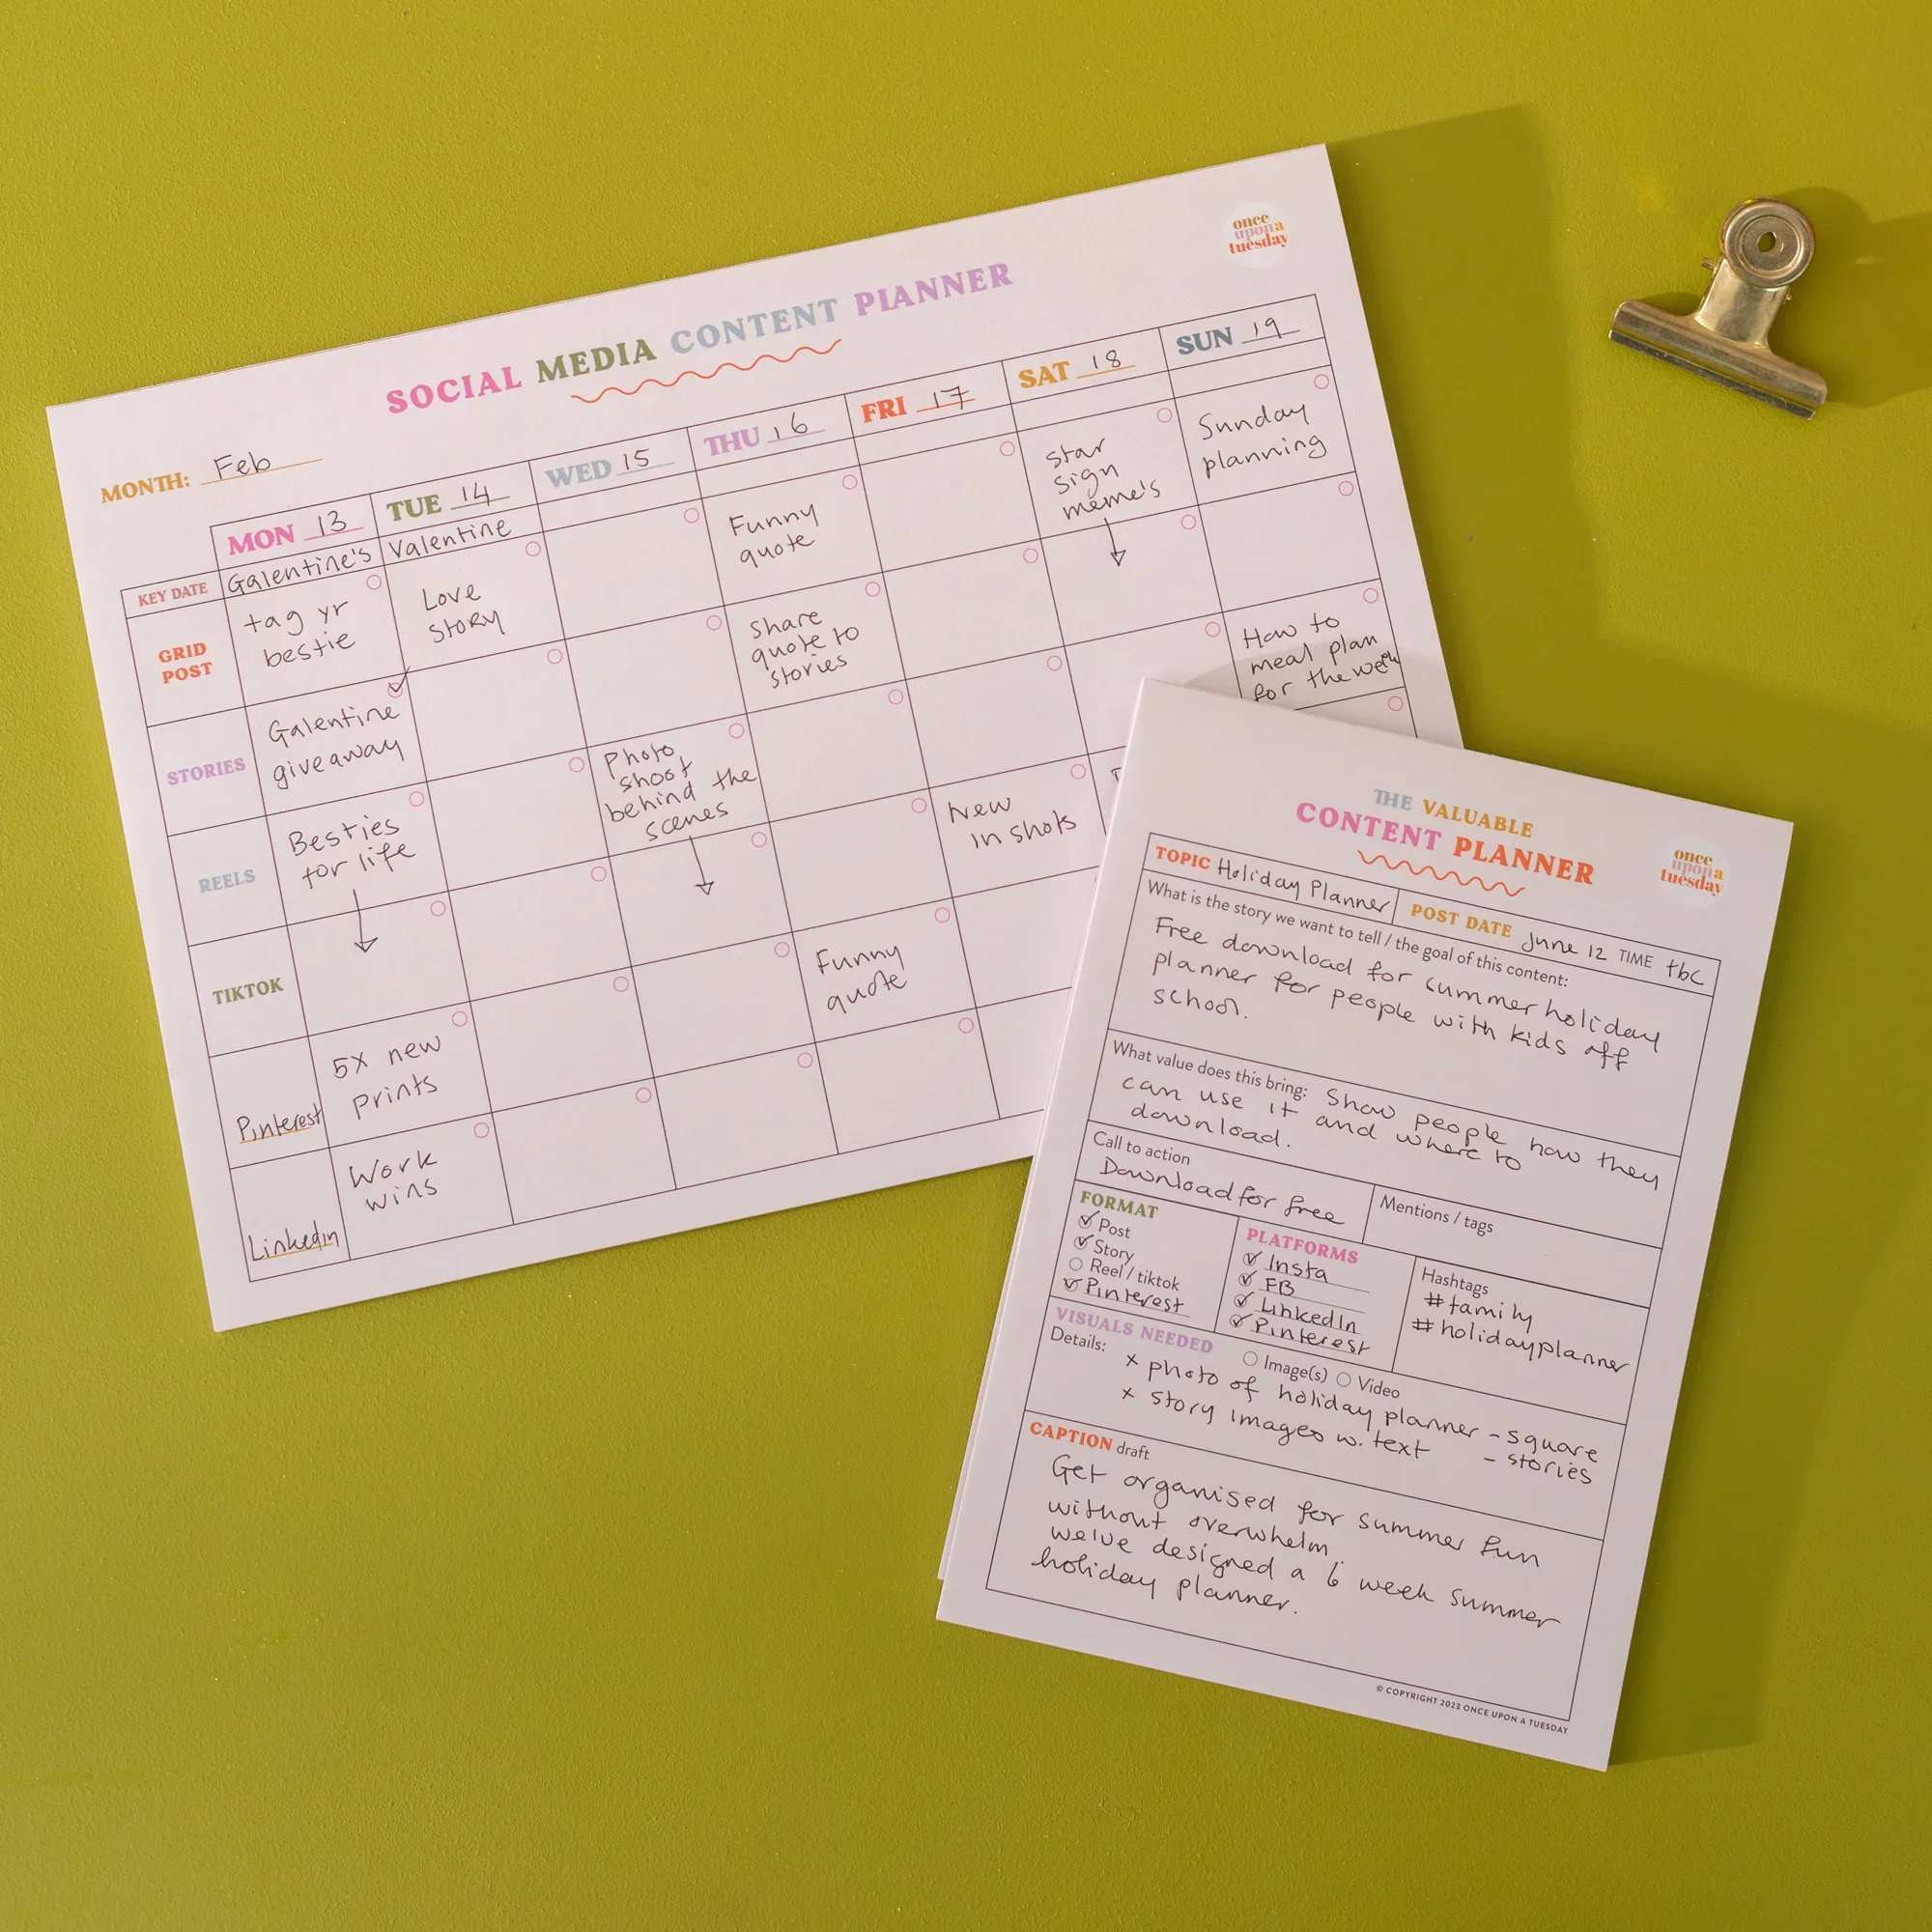 once
upon a
tuesday
SOCIAL MEDIA CONTENT PLANNER
MONTH: Feb
MON 13
TUE 14
WED 15
THU 16
FRI 17
SAT 18
SUN 19
KEY DATE
Galentine's
Valentine
GRID
POST
tag yr
bestie
Love
story
Funny
quote
Star
sign
meme's
Sunday
planning
STORIES
Galentine
giveaway
Share
quote to
stories
REELS
Besties
for life
Photo
shoot
behind the
scenes
How to
meal plan
for the week
TIKTOK
New
in shots
Pinterest
5X new
prints
Funny
quote
LinkedIn
Work
wins
THE VALUABLE
CONTENT PLANNER
once
upon a
tuesday
TOPIC Holiday Planner
POST DATE June 12 TIME tbc
What is the story we want to tell / the goal of this content:
Free download for summer holiday
planner for people with kids off
school.
What value does this bring: Show people how they
can use it and where to
download.
Call to action
Download for free
Mentions / tags
FORMAT
Post
Story
Reel / tiktok
Pinterest
PLATFORMS
Insta
FB
LinkedIn
Pinterest
Hashtags
#family
#holidayplanner
VISUALS NEEDED
Image(s) Video
Details:
x photo of holiday planner - square
x story images w. text - stories
CAPTION draft
Get organised for summer fun
without overwhelm.
we've designed a 6 week summer
holiday planner.
© COPYRIGHT 2023 ONCE UPON A TUESDAY